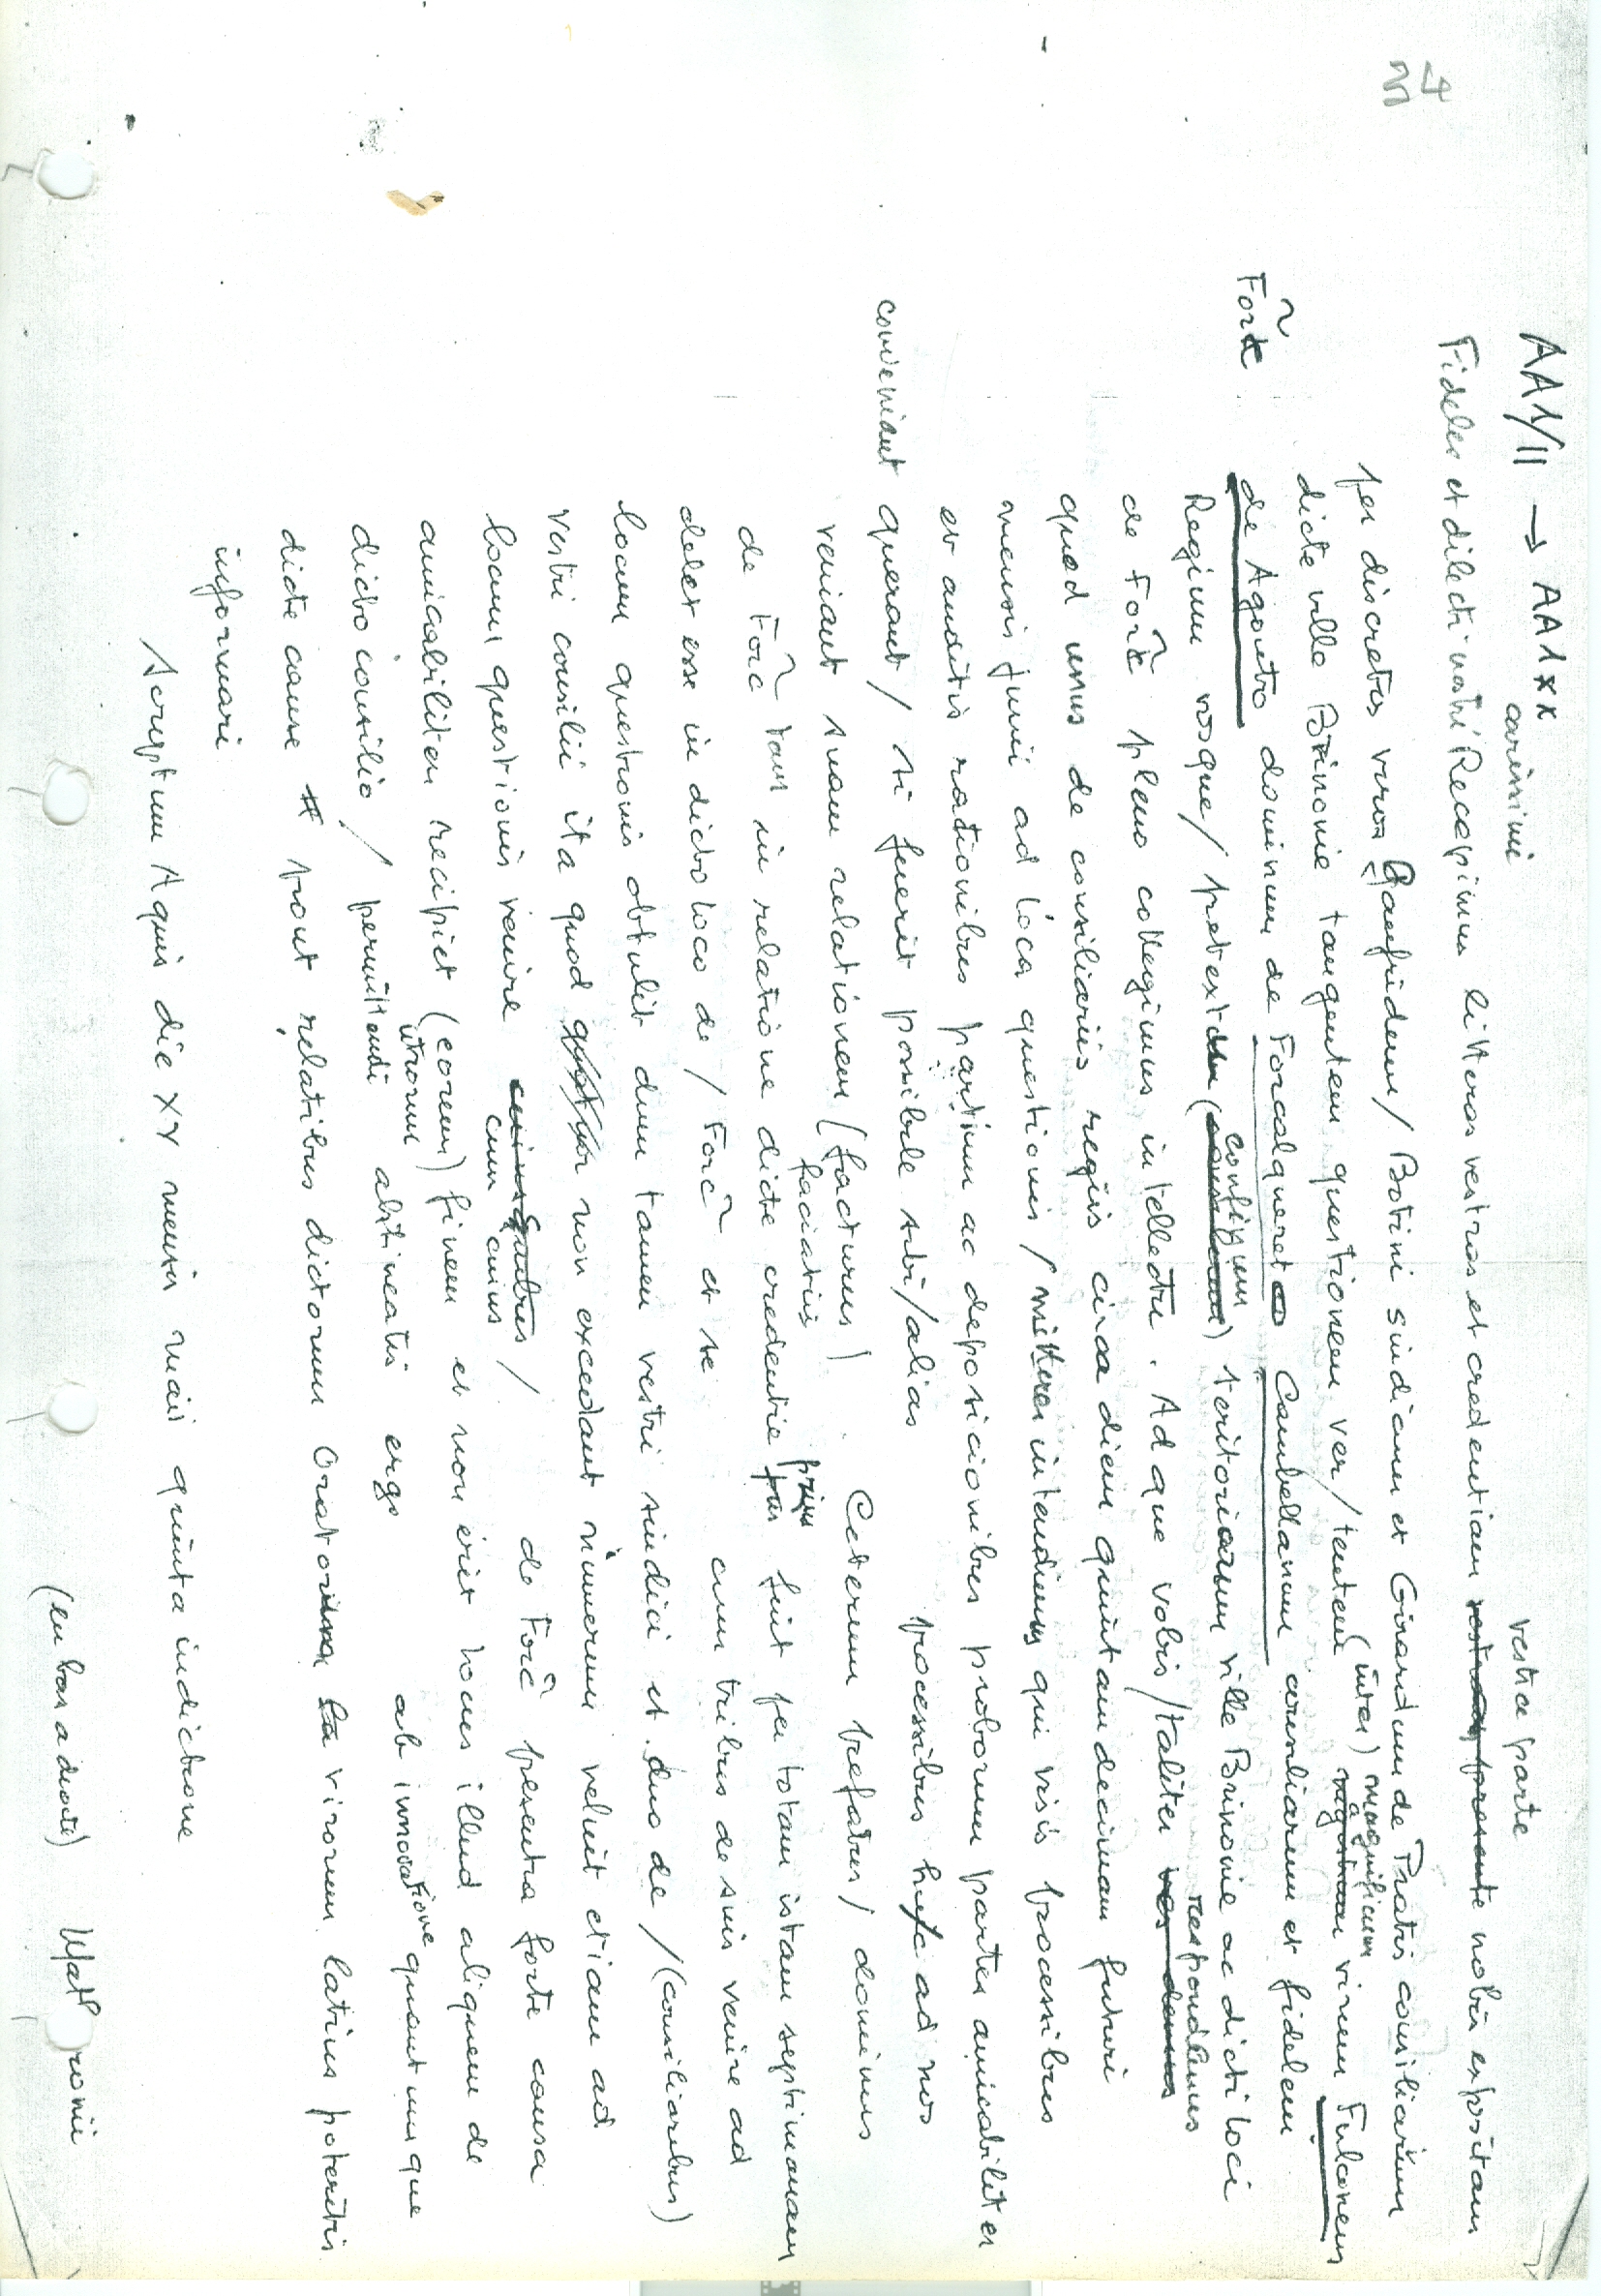 34
AA1/11 → AA1 XX
carissimi vestra parte
Fideles et dilecti nostri Recepimus litteras vestras et credentiam vestram presente nobis expositam
per discretos viros Gaufridum / Botini sindicum et Girardum de Pratis consiliarium
dicte ville Brinonie tangentem questionem ver/tentem (inter) magnificum virum Fulconem
de Agouto dominum de Forcalquereto Cambellanum consiliarium et fidelem
Forc̃
Regium vosque / pretextu (confinium) teritoriorum ville Brinonie ac dicti loci
de Forc̃ pleno collegimus intellectu. Ad que vobis / taliter respondemus
quod unus de consiliariis regiis circa diem quintamdecimam futuri
mensis junii ad loca questionis / mittere intendimus qui visis processibus
et auditis rationibus partium ac deposicionibus proborum partes amicabiliter
conveniant
querant / si fuerit possibile sibi / alias processibus huc ad nos
veniant suam relationem (facturus) Ceterum prefatus / dominus
faciatis
de Forc̃ tam in relatione dicte credentie prius fuit per totam istam septimanam
debet esse in dicto loco de / Forc̃ et se cum tribus de suis venire ad
locum questionis obtulit dum tamen vestri sindici et duo de / (consiliaribus)
vestri consilii ita quod non excedant numerum velint etiam ad
locum questionis venire cum cuius / de Forc̃ presentia forte causa
amicabiliter recipiet (eorum) finem et non erit locus illud aliquem de
utrorum
dicto consilio / permittendi abstineatis ergo ab innovatione quantumque
dicte cause prout relatibus dictorum Oratorum virorum latius poteritis
informari
Scriptum Aquis die XV mensis maii quinta indictione
(en bas a droite)